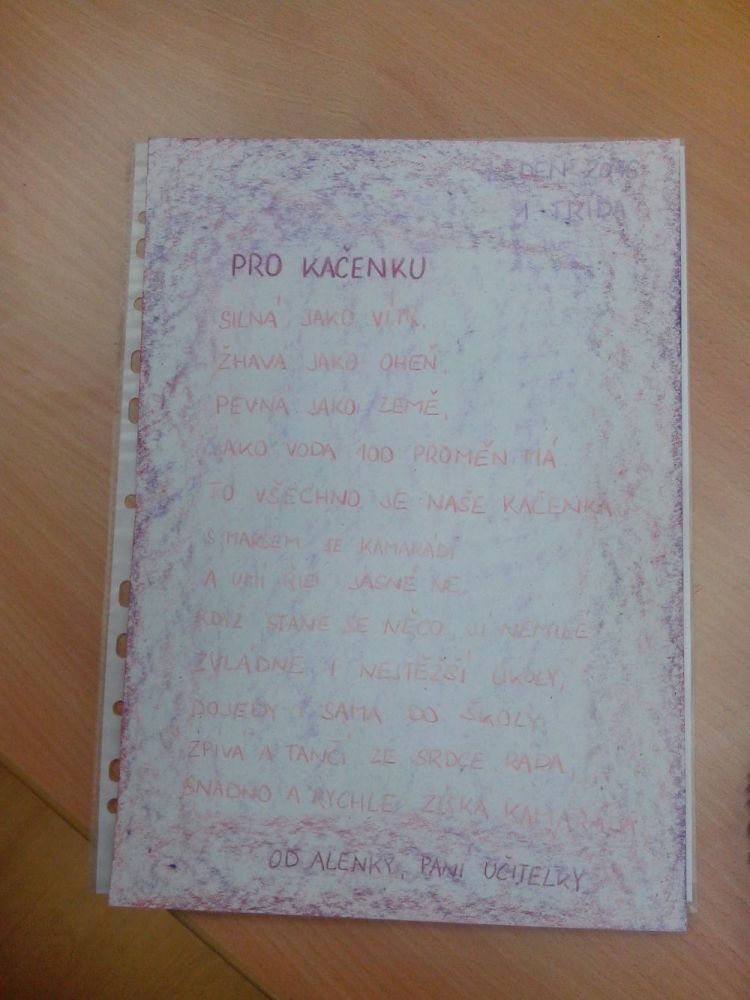 LEDEN 2015
1. TŘÍDA
PRO KAČENKU
SILNÁ JAKO VÍTR,
ŽHAVÁ JAKO OHEŇ,
PEVNÁ JAKO ZEMĚ,
JAKO VODA 100 PROMĚN MÁ
TO VŠECHNO JE NAŠE KAČENKA
S MARSEM SE KAMARÁDÍ
A UMÍ ŘÍCI JASNÉ NE,
KDYŽ STANE SE NĚCO JÍ NEMILÉ
ZVLÁDNE I NEJTĚŽŠÍ ÚKOLY,
DOJEDE I SAMA DO ŠKOLY
ZPÍVÁ A TANČÍ ZE SRDCE RÁDA,
SNADNO A RYCHLE ZÍSKÁ KAMARÁDA
OD ALENKY, PANÍ UČITELKY